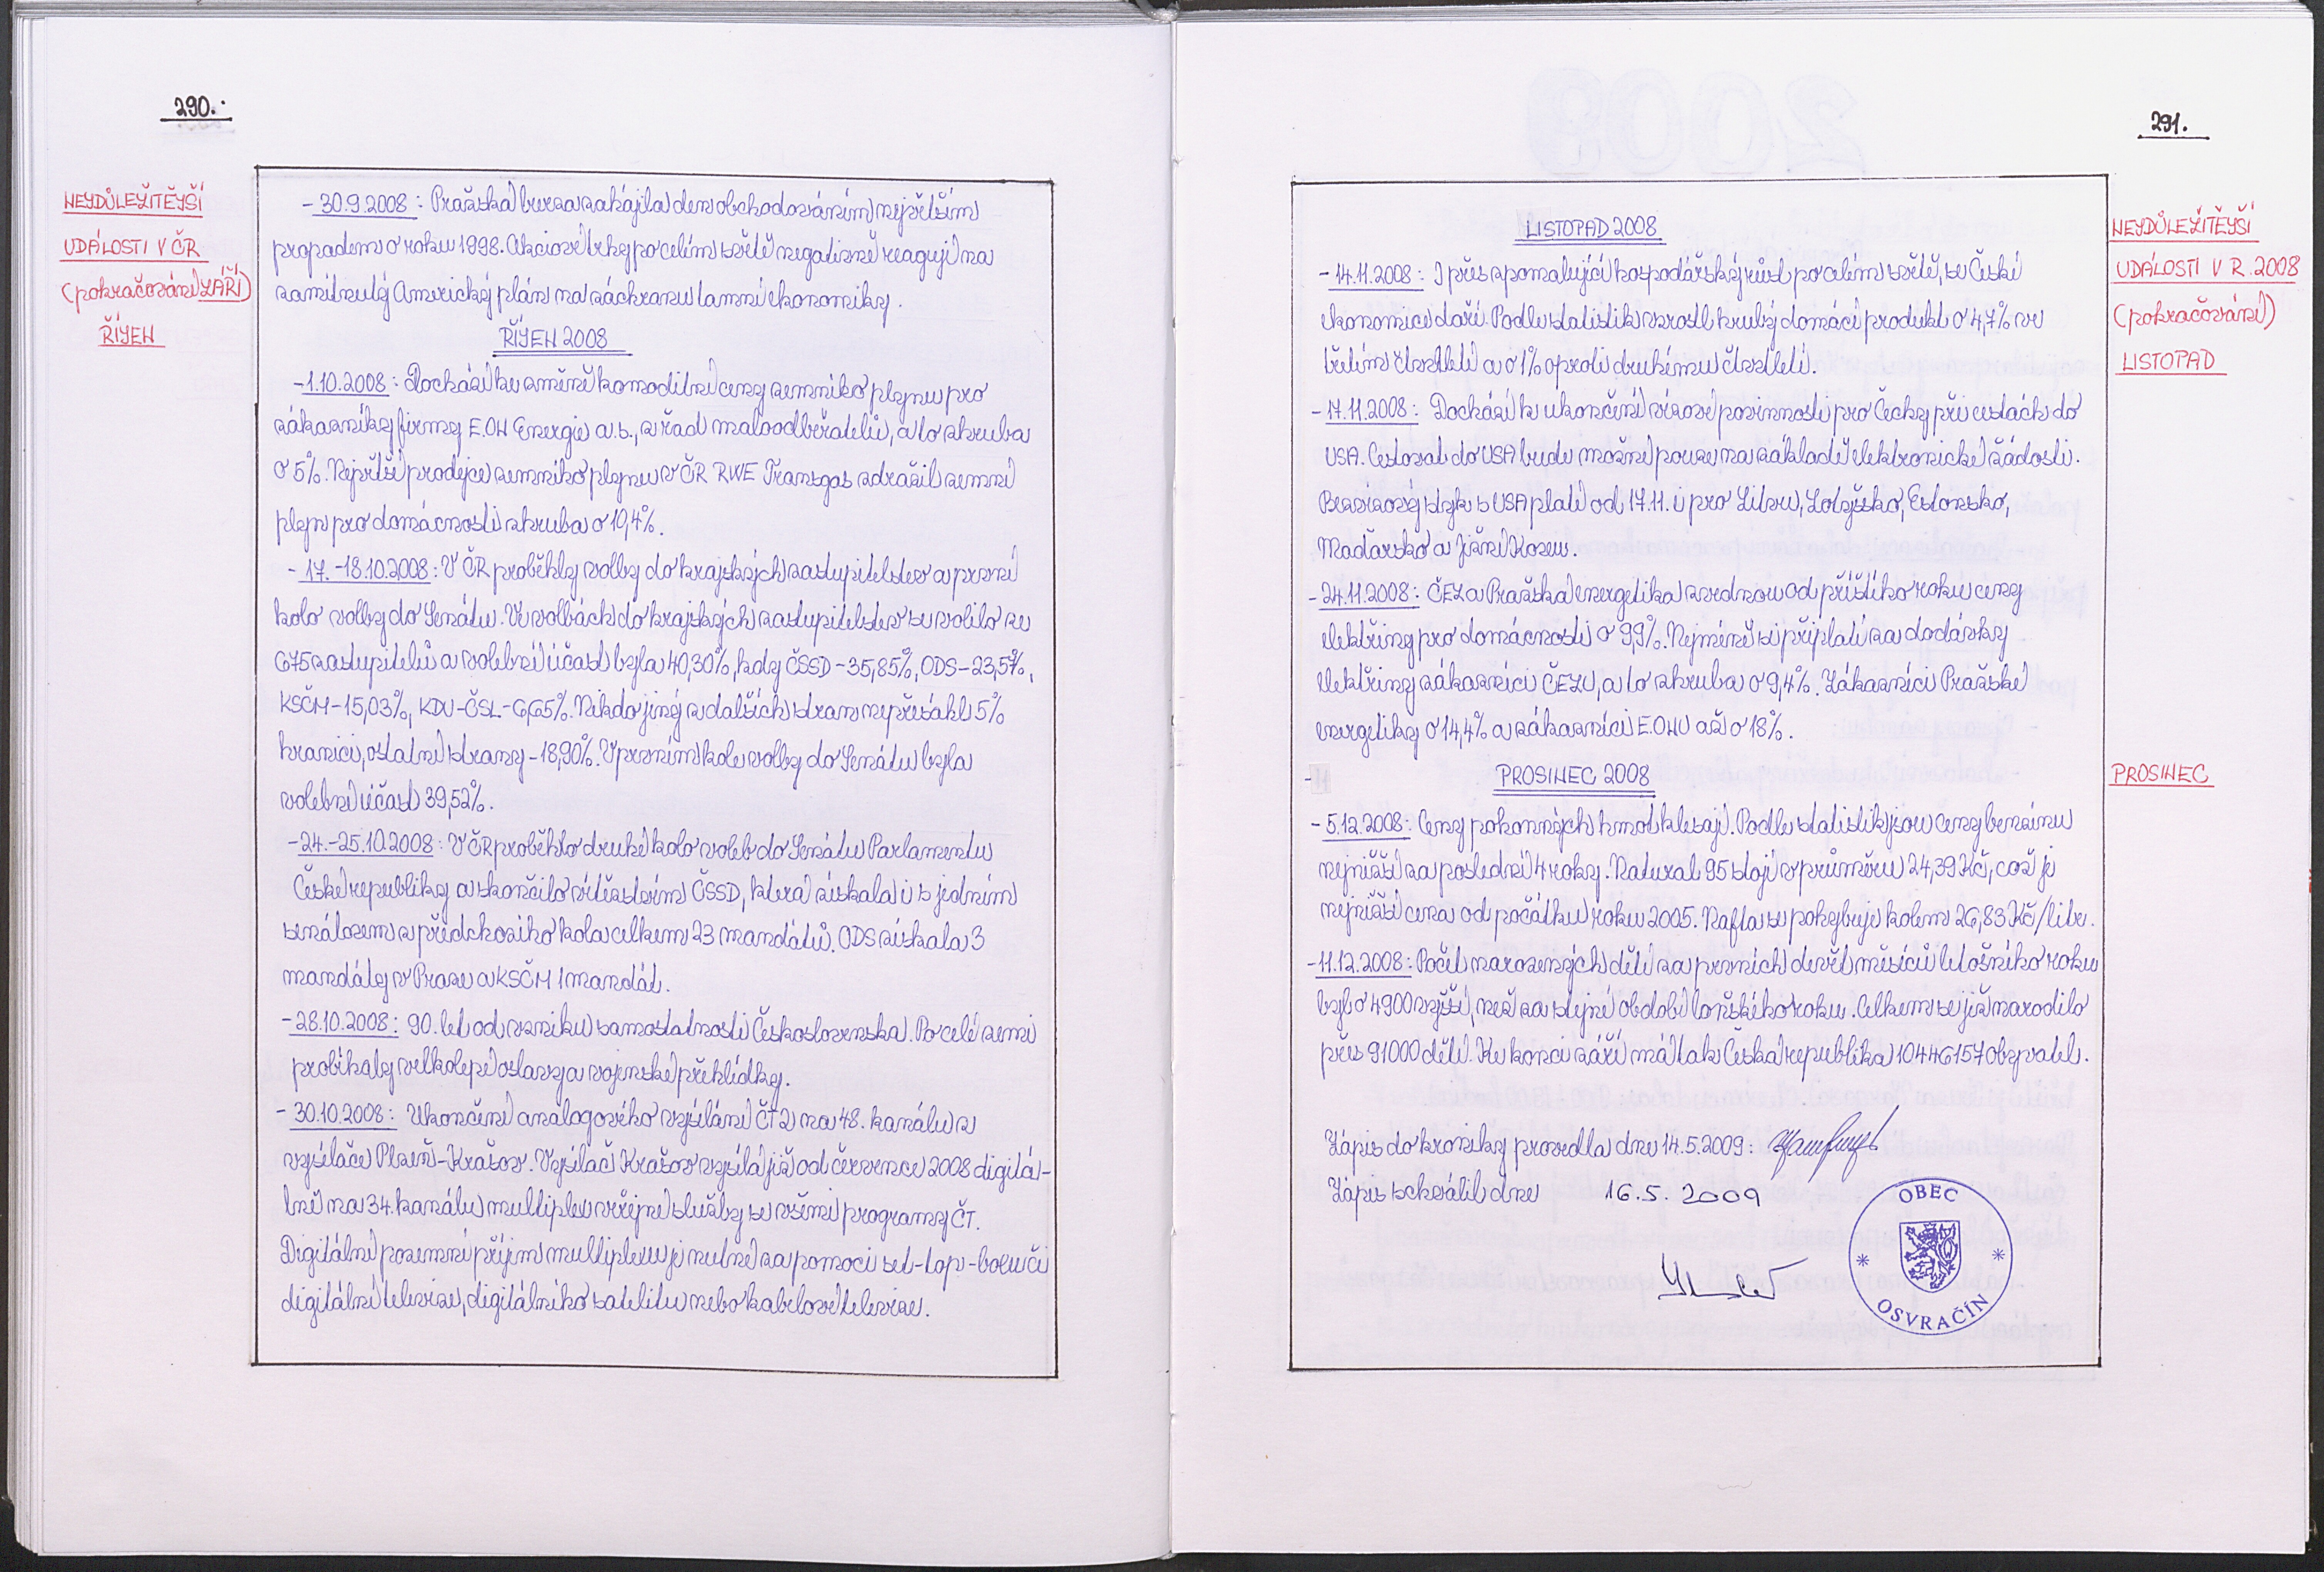 290.
NEJDŮLEŽITĚJŠÍ
UDÁLOSTI V ČR
(pokračování ZÁŘÍ)
ŘÍJEN
- 30.9.2008: Pražská burza zahájila den obchodováním největším
propadem o roku 1998. Akciové trhy po celém světě negativně reagují na
zamítnutý Americký plán na záchranu tamní ekonomiky.
ŘÍJEN 2008
-1.10.2008: Dochází ke změně komoditní ceny zemního plynu pro
zákazníky firmy E.ON Energie a.s., z řad maloodběratelů, a to zhruba
o 5%. Největší prodejce zemního plynu v ČR RWE Transgas zdražil zemní
plyn pro domácnosti zhruba o 19,4%.
- 17.-18.10.2008: V ČR proběhly volby do krajských zastupitelstev a první
kolo volby do Senátu. Ve volbách do krajských zastupitelstev se volilo ze
675 zastupitelů a volební účast byla 40,30%, kdy ČSSD - 35,85%, ODS - 23,57%,
KSČM - 15,03%, KDU-ČSL - 6,65%. Nikdo jiný z dalších stran nepřesáhl 5%
hranici, ostatní strany - 18,90%. V prvním kole volby do Senátu byla
volební účast 39,52%.
- 24.-25.10.2008: V ČR proběhlo druhé kolo voleb do Senátu Parlamentu
České republiky a skončilo vítězstvím ČSSD, která získala i s jedním
senátorem z předchozího kola celkem 23 mandátů. ODS získala 3
mandáty v Praze a KSČM 1 mandát.
- 28.10.2008: 90. let od vzniku samostatnosti Československa. Po celé zemi
probíhaly velkolepé oslavy a vojenské přehlídky.
- 30.10.2008: Ukončení analogového vysílání ČT2 na 48. kanálu z
vysílače Plzeň-Krašov. Vysílač Krašov vysílá již od července 2008 digitá-
lně na 34. kanálu multiplex veřejné služby se všemi programy ČT.
Digitální pozemní příjem multiplexu je nutné za pomoci set-top-boxu či
digitální televize, digitálního satelitu nebo kabelové televize.
291.
NEJDŮLEŽITĚJŠÍ
UDÁLOSTI V R. 2008
(pokračování)
LISTOPAD
LISTOPAD 2008
- 14.11.2008: I přes zpomalující hospodářský růst po celém světě, se České
ekonomice daří. Podle statistik vzrostl hrubý domácí produkt o 4,7% ve
třetím čtvrtletí a o 1% oproti druhému čtvrtletí.
- 17.11.2008: Dochází k ukončení vízové povinnosti pro Čechy při cestách do
USA. Cestovat do USA bude možné pouze na základě elektronické žádosti.
Bezvízový styk s USA platí od 17.11. i pro Litvu, Lotyšsko, Estonsko,
Maďarsko a Jižní Koreu.
- 24.11.2008: ČEZ a Pražská energetika zvednou od příštího roku ceny
elektřiny pro domácnosti o 9,9%. Nejméně si připlatí za dodávky
elektřiny zákazníci ČEZU, a to zhruba o 9,4%. Zákazníci Pražské
energetiky o 14,4% a zákazníci E.ONU až o 18%.
PROSINEC 2008
PROSINEC
- 5.12.2008: Ceny pohonných hmot klesají. Podle statistik jsou ceny benzínu
nejnižší za poslední 4 roky. Natural 95 stojí v průměru 24,39 Kč, což je
nejnižší cena od počátku roku 2005. Nafta se pohybuje kolem 26,83 Kč/litr.
- 11.12.2008: Počet narozených dětí za prvních devět měsíců letošního roku
byl o 4900 vyšší, než za stejné období loňského roku. Celkem se již narodilo
přes 91000 dětí. Ke konci září má tak Česká republika 10446157 obyvatel.
Zápis do kroniky provedla dne 14.5.2009:
Zápis schválil dne 16.5.2009
OBEC
OSVRAČÍN